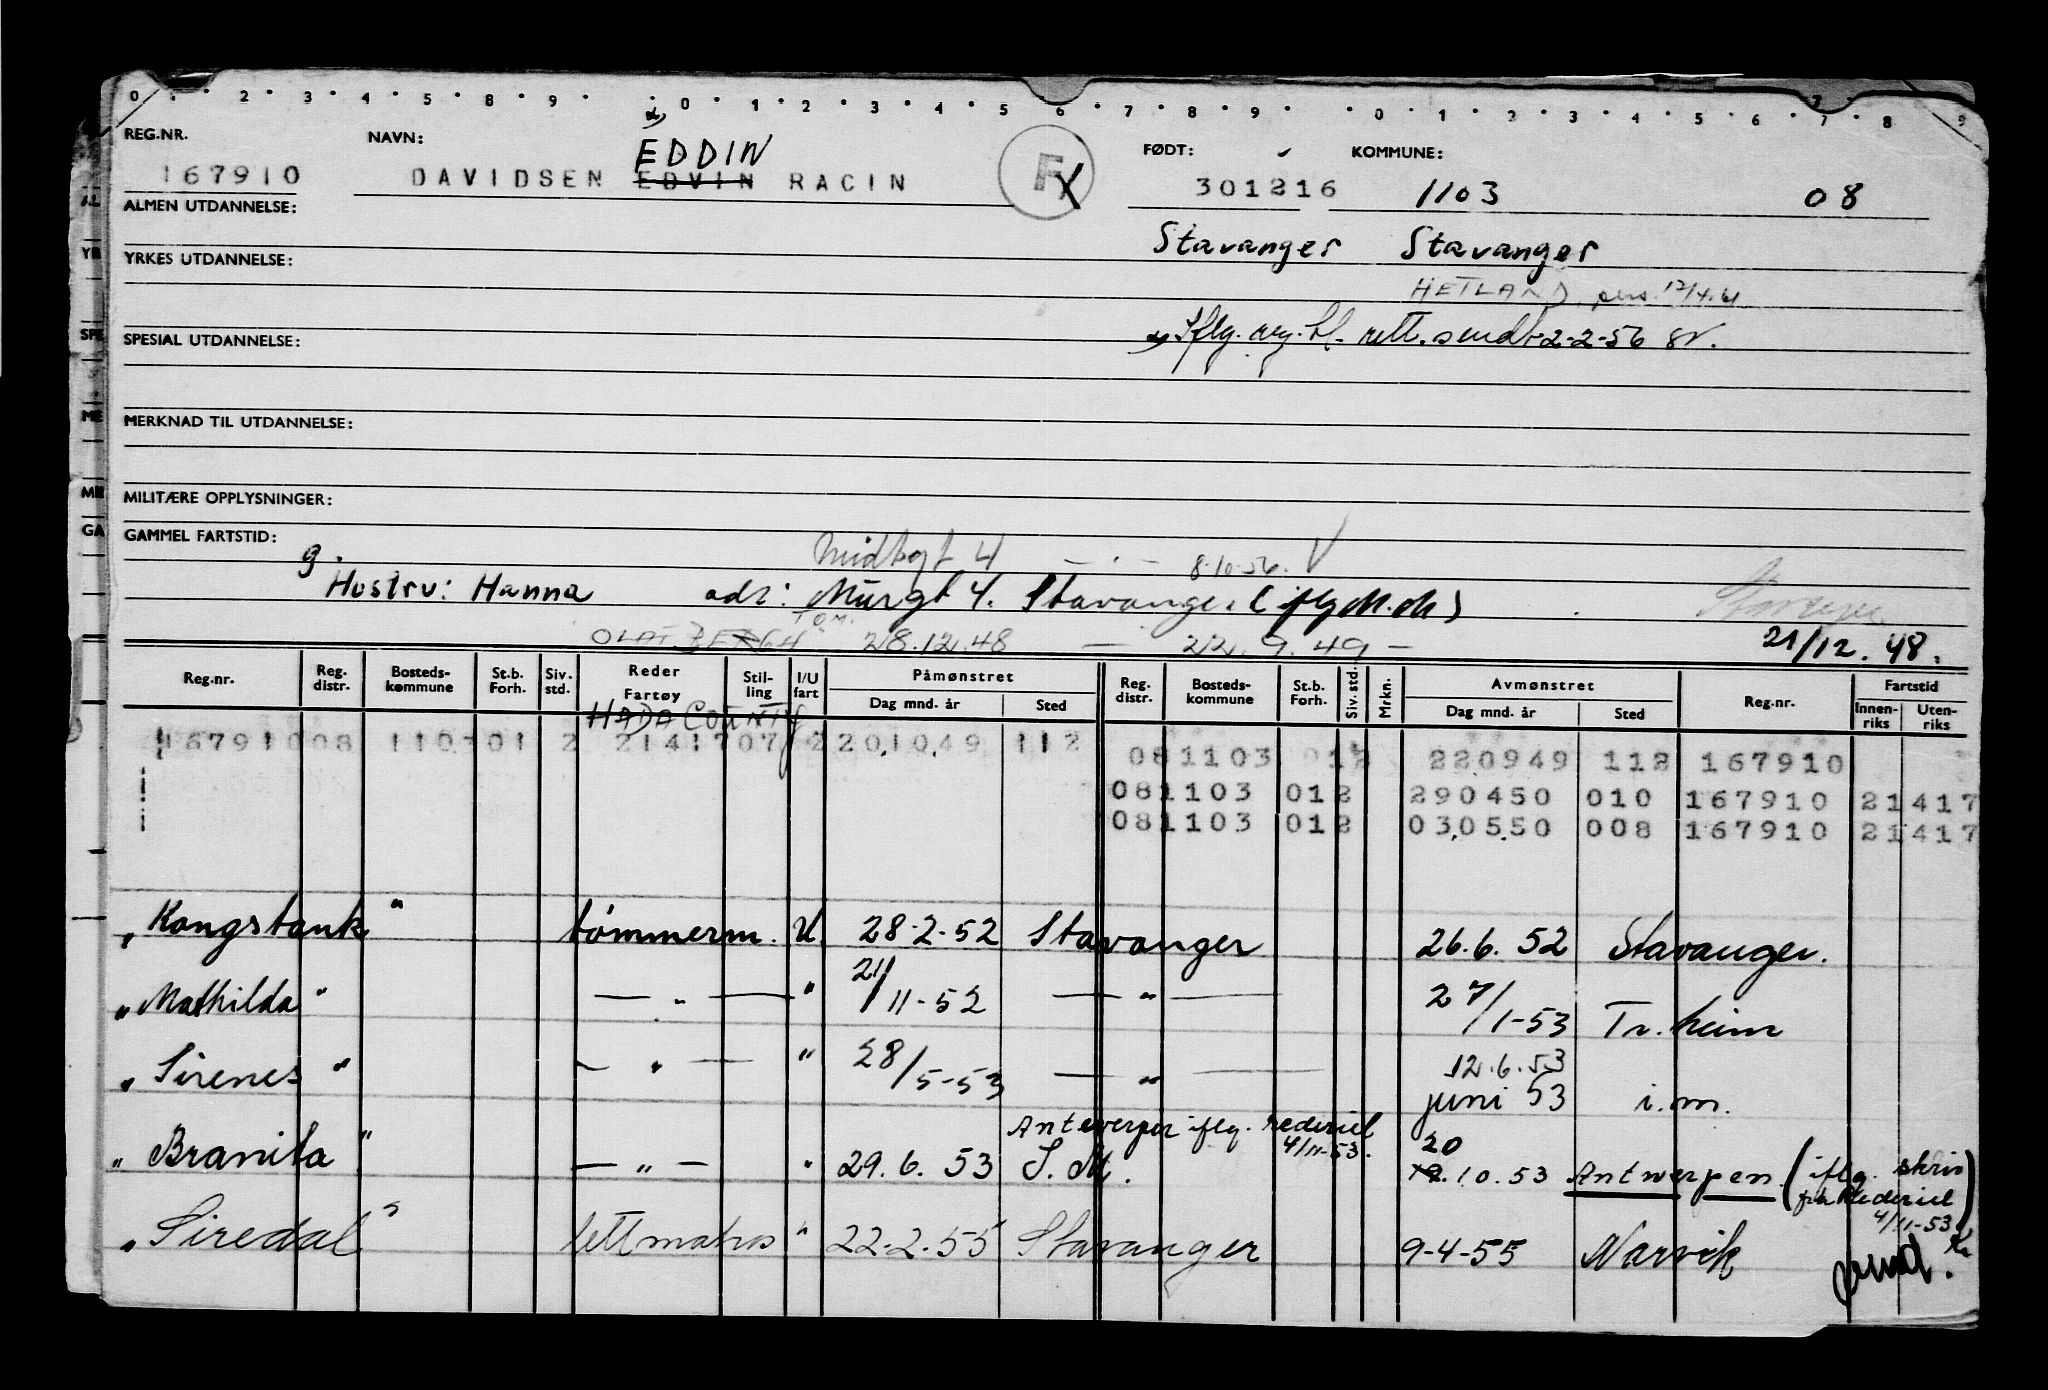 0 · 2 · 3 · 4 · 5 · 8 · 9 · · 0 · 1 · 2 · 3 · 4 · 5 · 6 · 7 · 8 · 9 · · 0 · 1 · 2 · 3 · 4 · 5 · 6 · 7 · 8 · 9
REG.NR. NAVN: EDDIN FØDT: KOMMUNE:
167910 DAVIDSEN EDVIN RACIN F 301216 1103 08
ALMEN UTDANNELSE:
Stavanger Stavanger
YRKES UTDANNELSE:
HETLAND 12/4.61
SPESIAL UTDANNELSE: Iflg. reg. bl. rett. sendt 2-2-56
MERKNAD TIL UTDANNELSE:
MILITÆRE OPPLYSNINGER:
GAMMEL FARTSTID:
g. Midtbgt 4 — · — 8-10-56. V
Hustru: Hanna adr: Murgt 4. Stavanger (iflg M.M) Stavanger
TOM.
28.12.48 — 22.9.49 — 21/12.48.
Reg.nr. Reg. distr. Bosteds-kommune St.b. Forh. Siv. std. Reder Fartøy Stil-ling I/U fart Påmønstret Dag mnd. år Sted Reg. distr. Bosteds-kommune St.b. Forh. Siv. std. Mrkn. Avmønstret Dag mnd. år Sted Reg.nr. Fartstid Innen-riks Uten-riks
HADA COUNTY
167910 08 1103 01 2 21417 07 2 201049 112
081103 012 220949 112 167910
081103 012 290450 010 167910 21417
081103 012 030550 008 167910 21417
„Kongstank" tømmerm. U. 28-2-52 Stavanger 26.6.52 Stavanger.
„Mathilda" — „ — " 21/11-52 — „ — 27/1-53 Tr.heim
„Sirenes" — „ — " 28/5-53 — „ — 12.6.53
juni 53 i.m.
Antwerpen iflg. rederiet 4/11-53.
„Branita" — „ — " 29.6.53 S.M. 20.10.53 Antwerpen (iflg. skriv fra Rederiet 4/11-53)
„Siredal" lettmatros " 22-2-55 Stavanger 9-4-55 Narvik